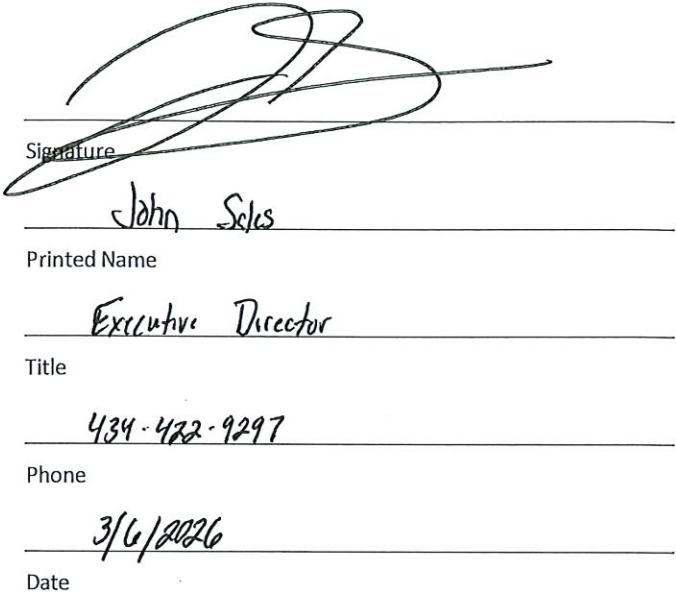 Signature
John Sales
Printed Name
Executive Director
Title
434-422-9297
Phone
3/6/2026
Date